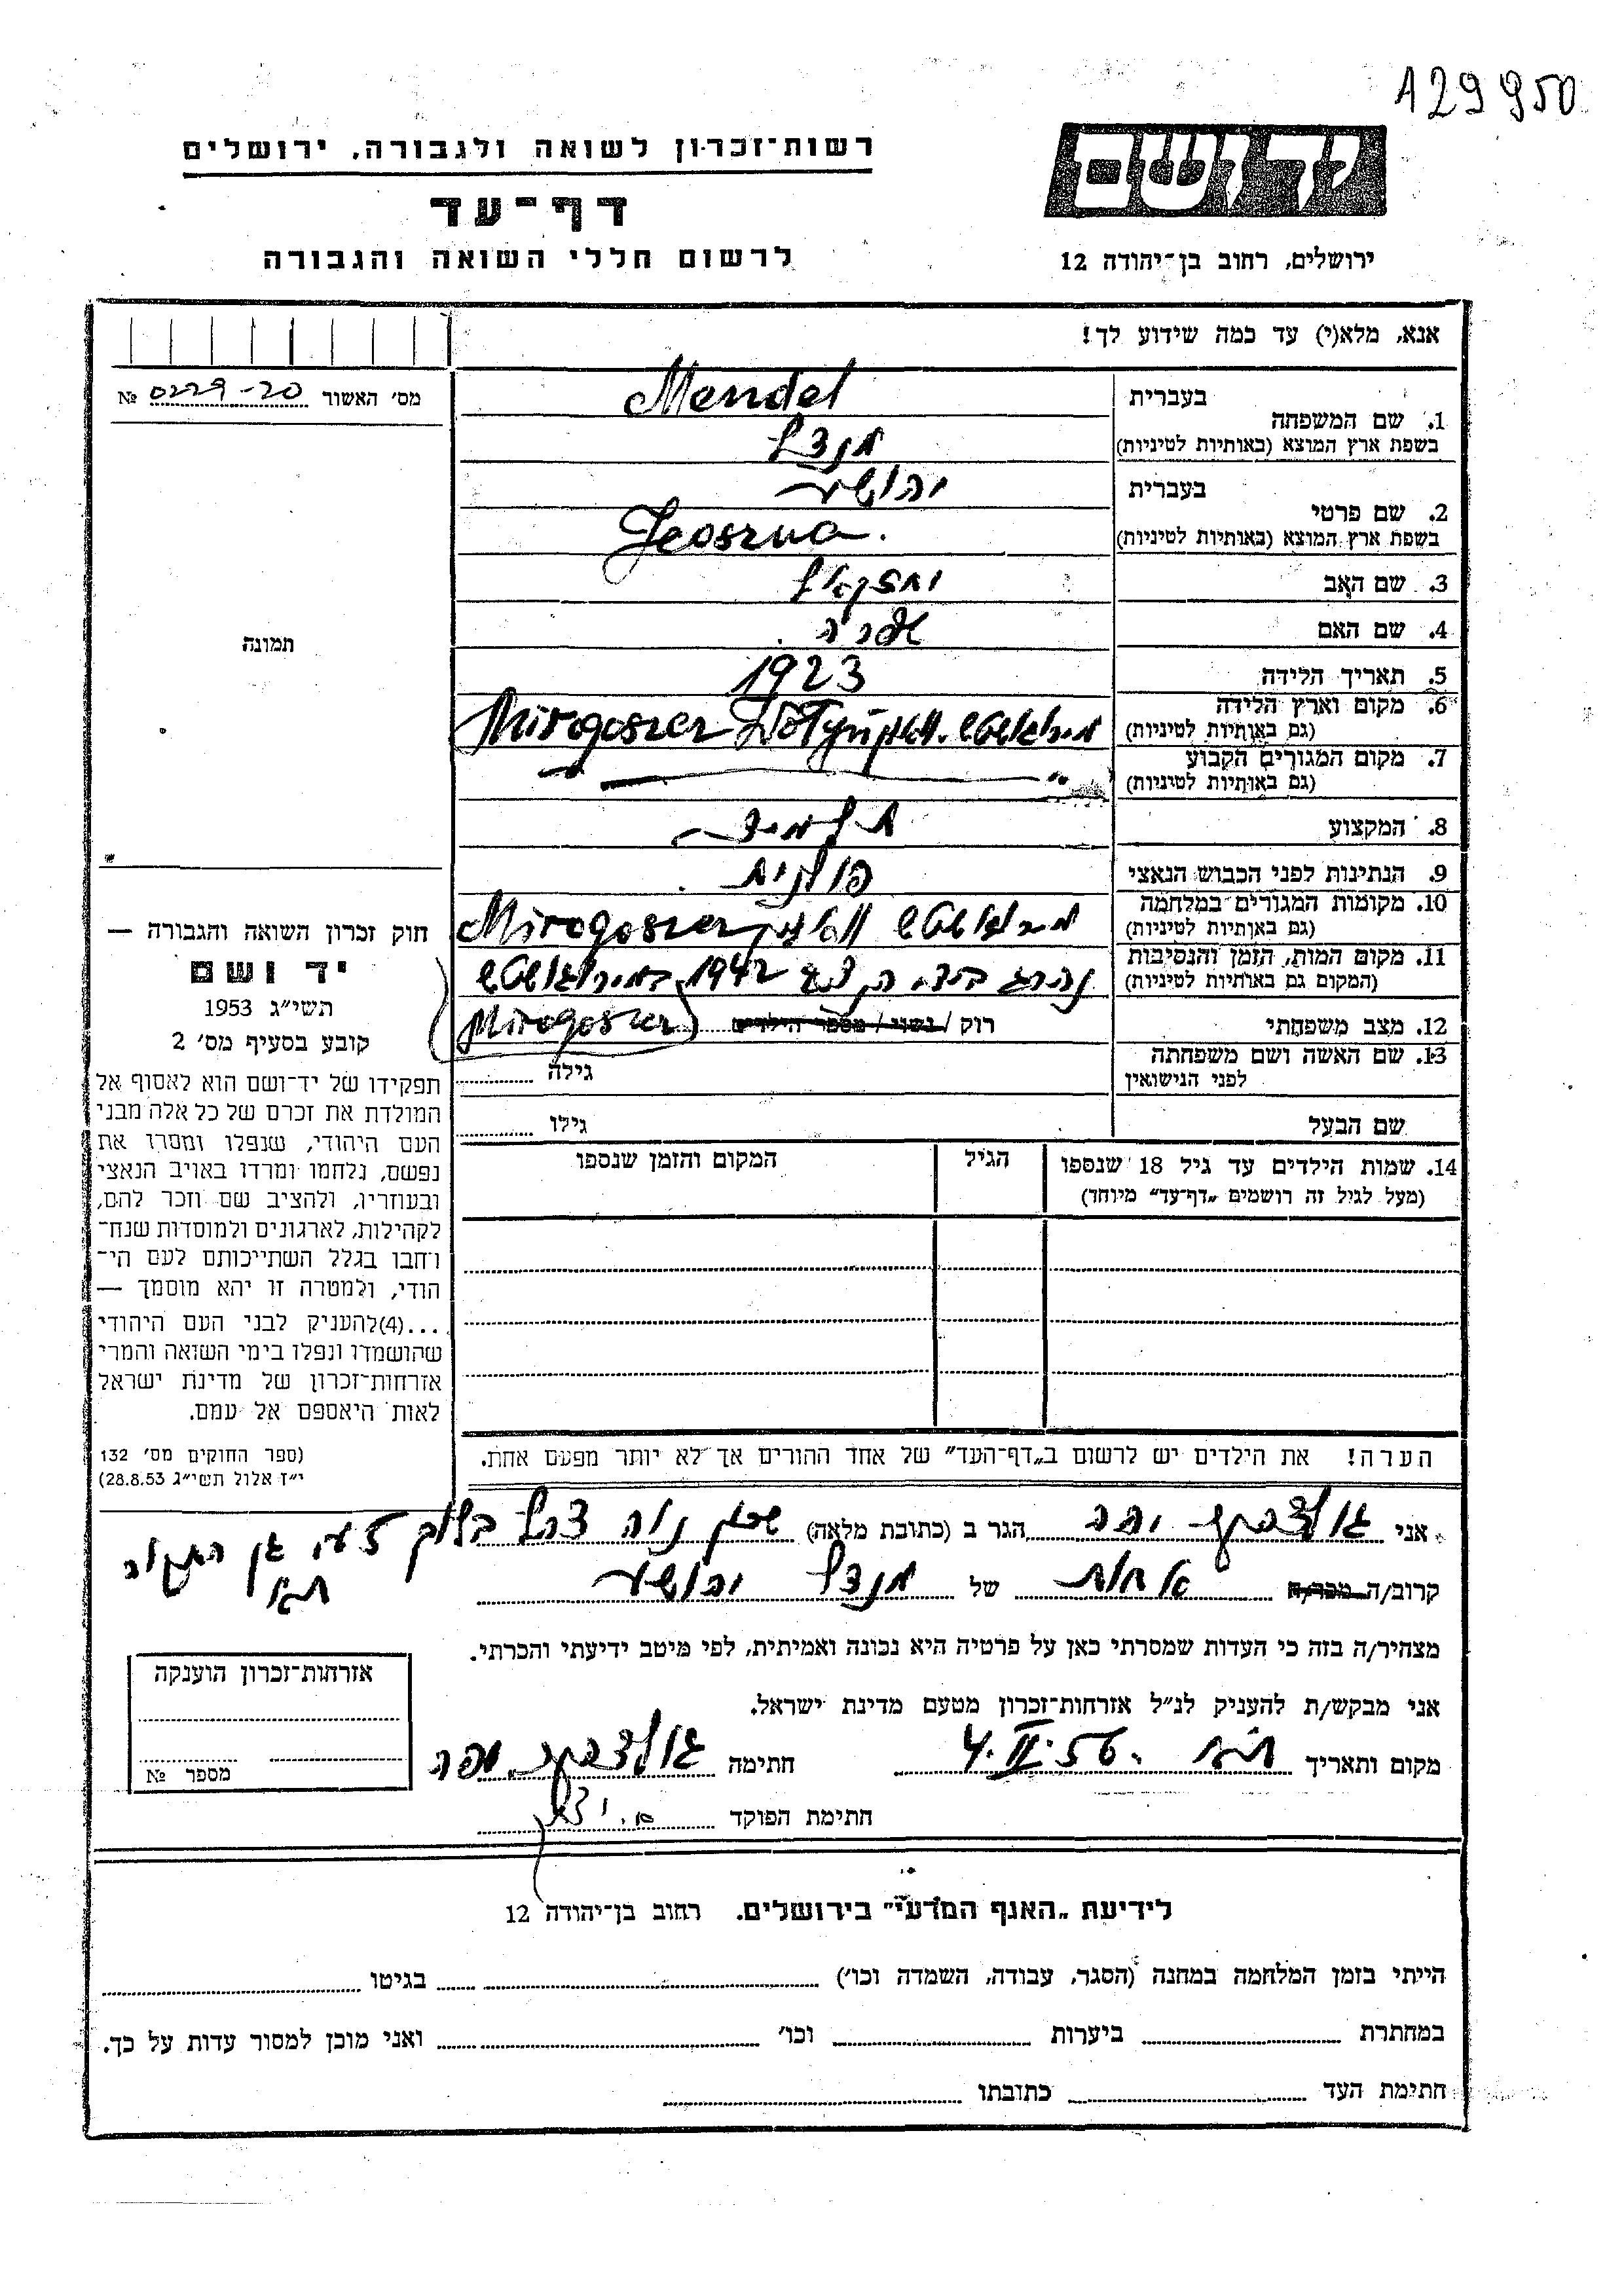 A29950
יד ושם
רשות־זכרון לשואה ולגבורה, ירושלים
דף־עד
לרשום חללי השואה והגבורה
ירושלים, רחוב בן־יהודה 12
אנא, מלא(י) עד כמה שידוע לך!
מס׳ האשור №
תמונה
בעברית Mendel
1. שם המשפחה
בשפת ארץ המוצא (באותיות לטיניות) מנדל
בעברית יהושע
2. שם פרטי
בשפת ארץ המוצא (באותיות לטיניות) Jeoszua.
3. שם האב יחזקאל
4. שם האם
5. תאריך הלידה 1923
6. מקום וארץ הלידה
(גם באותיות לטיניות) Mirogoszer
7. מקום המגורים הקבוע
(גם באותיות לטיניות)
8. המקצוע תלמיד
9. הנתינות לפני הכבוש הנאצי פולנית
10. מקומות המגורים במלחמה
(גם באותיות לטיניות) Mirogoszer
11. מקום המות, הזמן והנסיבות
(המקום גם באותיות לטיניות) נהרג 1942
12. מצב משפחתי רוק / נשוי / מספר הילדים (Mirogoszer)
13. שם האשה ושם משפחתה
לפני הנישואין גילה
שם הבעל גילו
14. שמות הילדים עד גיל 18 שנספו הגיל המקום והזמן שנספו
(מעל לגיל זה רושמים „דף־עד” מיוחד)
הערה! את הילדים יש לרשום ב„דף־העד” של אחד ההורים אך לא יותר מפעם אחת.
חוק זכרון השואה והגבורה —
יד ושם
תשי״ג 1953
קובע בסעיף מס׳ 2
תפקידו של יד־ושם הוא לאסוף אל
המולדת את זכרם של כל אלה מבני
העם היהודי, שנפלו ומסרו את
נפשם, נלחמו ומרדו באויב הנאצי
ובעוזריו, ולהציב שם וזכר להם,
לקהילות, לארגונים ולמוסדות שנח־
רבו בגלל השתייכותם לעם הי־
הודי, ולמטרה זו יהא מוסמך —
...(4)להעניק לבני העם היהודי
שהושמדו ונפלו בימי השואה והמרי
אזרחות־זכרון של מדינת ישראל
לאות היאספם אל עמם.
(ספר החוקים מס׳ 132
י״ז אלול תשי״ג 28.8.53)
אני הגר ב (כתובת מלאה) שכון נוה צהל בלוק גן התקוה
ת״א
קרוב/ה מכר/ה אחות של מנדל יהושע
מצהיר/ה בזה כי העדות שמסרתי כאן על פרטיה היא נכונה ואמיתית, לפי מיטב ידיעתי והכרתי.
אני מבקש/ת להעניק לנ״ל אזרחות־זכרון מטעם מדינת ישראל.
מקום ותאריך ת״א 4.II.56 חתימה
חתימת הפוקד
אזרחות־זכרון הוענקה
מספר №
לידיעת „האגף המדעי” בירושלים. רחוב בן־יהודה 12
הייתי בזמן המלחמה במחנה (הסגר, עבודה, השמדה וכו׳) בגיטו
במחתרת ביערות וכו׳ ואני מוכן למסור עדות על כך.
חתימת העד כתובתו